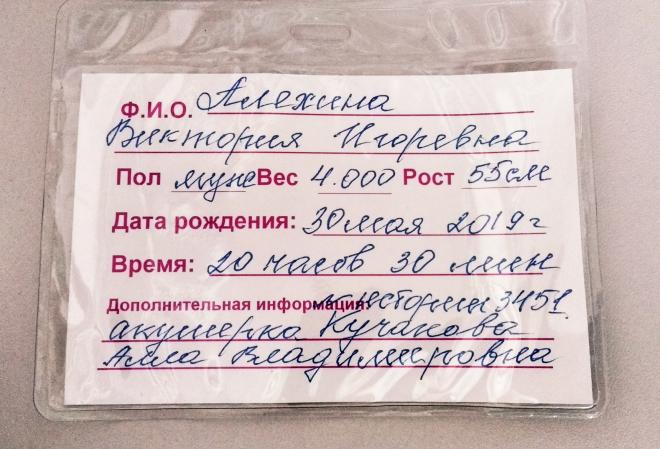 Ф.И.О. Алехина
Виктория Игоревна
Пол муж Вес 4.000 Рост 55см
Дата рождения: 30 мая 2019 г
Время: 20 часов 30 мин
Дополнительная информация: № истории 3451.
акушерка Кучакова
Алла Владимировна